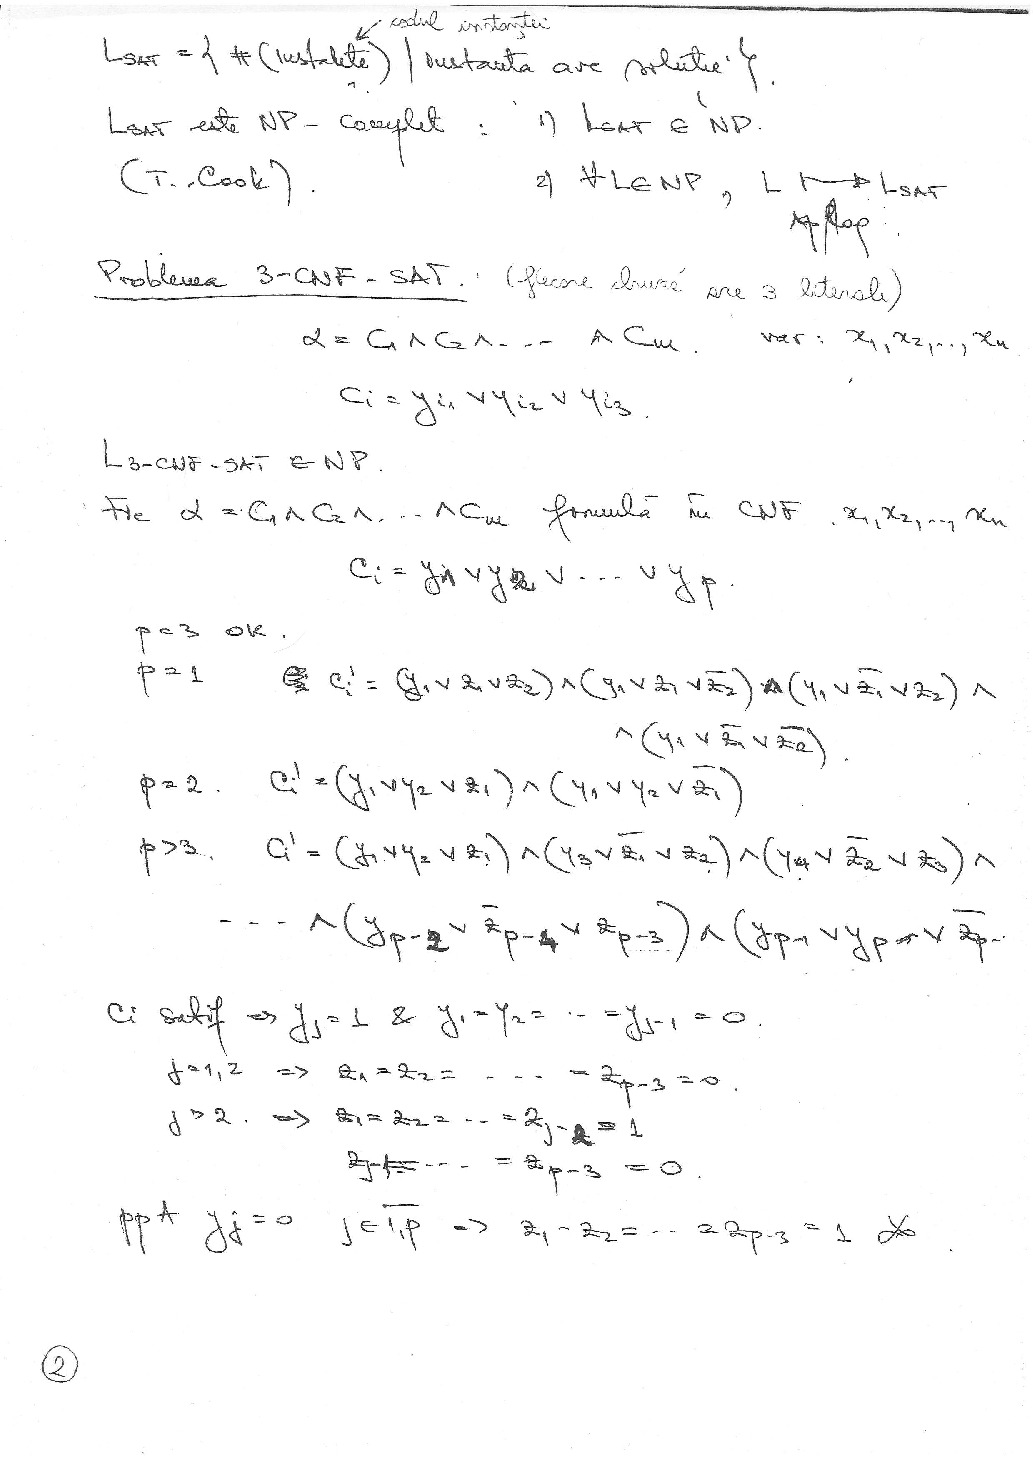 codul instanței
L_SAT = { #(instanțe) | instanța are soluție }.
L_SAT este NP-complet : 1) L_SAT ∈ NP.
(T. Cook). 2) ∀ L ∈ NP, L ⟼ L_SAT
Problema 3-CNF-SAT. : (fiecare clauză are 3 literali)
α = C1 ∧ C2 ∧ ... ∧ Cm. var: x1, x2, ..., xn
Ci = yi1 ∨ yi2 ∨ yi3.
L_3-CNF-SAT ∈ NP.
Fie α = C1 ∧ C2 ∧ ... ∧ Cm formulă în CNF. x1, x2, ..., xn
Ci = y1 ∨ y2 ∨ ... ∨ yp.
p=3 ok.
p=1 Ci' = (y1 ∨ z1 ∨ z2) ∧ (y1 ∨ z1 ∨ z̅2) ∧ (y1 ∨ z̅1 ∨ z2) ∧
∧ (y1 ∨ z̅1 ∨ z̅2).
p=2. Ci' = (y1 ∨ y2 ∨ z1) ∧ (y1 ∨ y2 ∨ z̅1)
p>3. Ci' = (y1 ∨ y2 ∨ z1) ∧ (y3 ∨ z̅1 ∨ z2) ∧ (y4 ∨ z̅2 ∨ z3) ∧
.... ∧ (yp-2 ∨ z̅p-4 ∨ zp-3) ∧ (yp-1 ∨ yp ∨ z̅p-
Ci satisf ⇒ yj=1 & y1=y2= ... =yj-1=0.
j=1,2 => z1=z2= .... = zp-3=0.
j>2. => z1=z2= ... =zj-2=1
zj-1= ... =zp-3=0.
ppA yj=0 j∈1,p => z1=z2= ... =zp-3=1
2